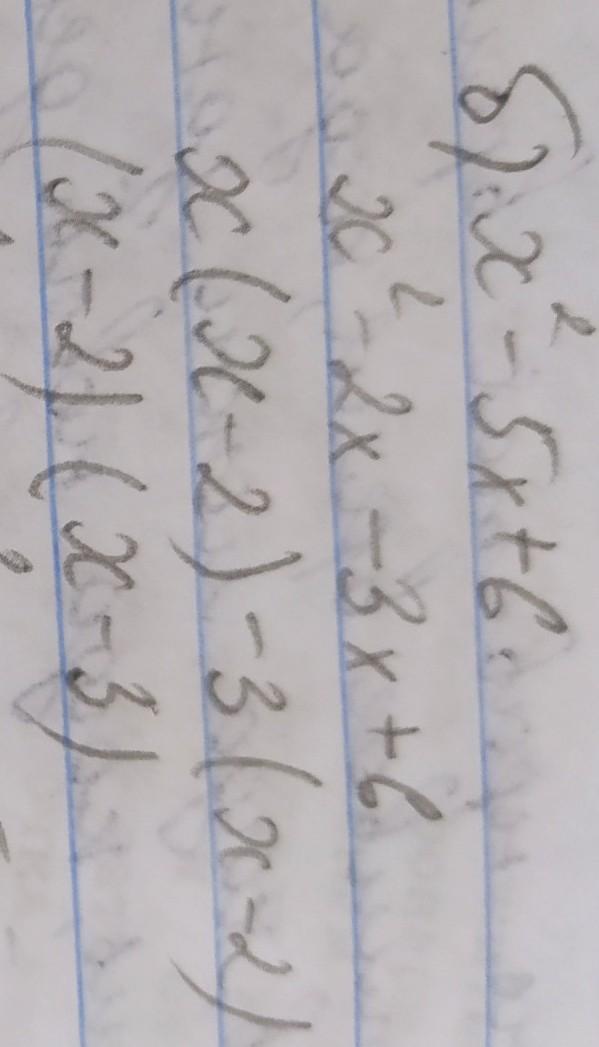 б) x² - 5x + 6.
x² - 2x - 3x + 6
x (x - 2) - 3 (x - 2)
(x - 2) (x - 3)